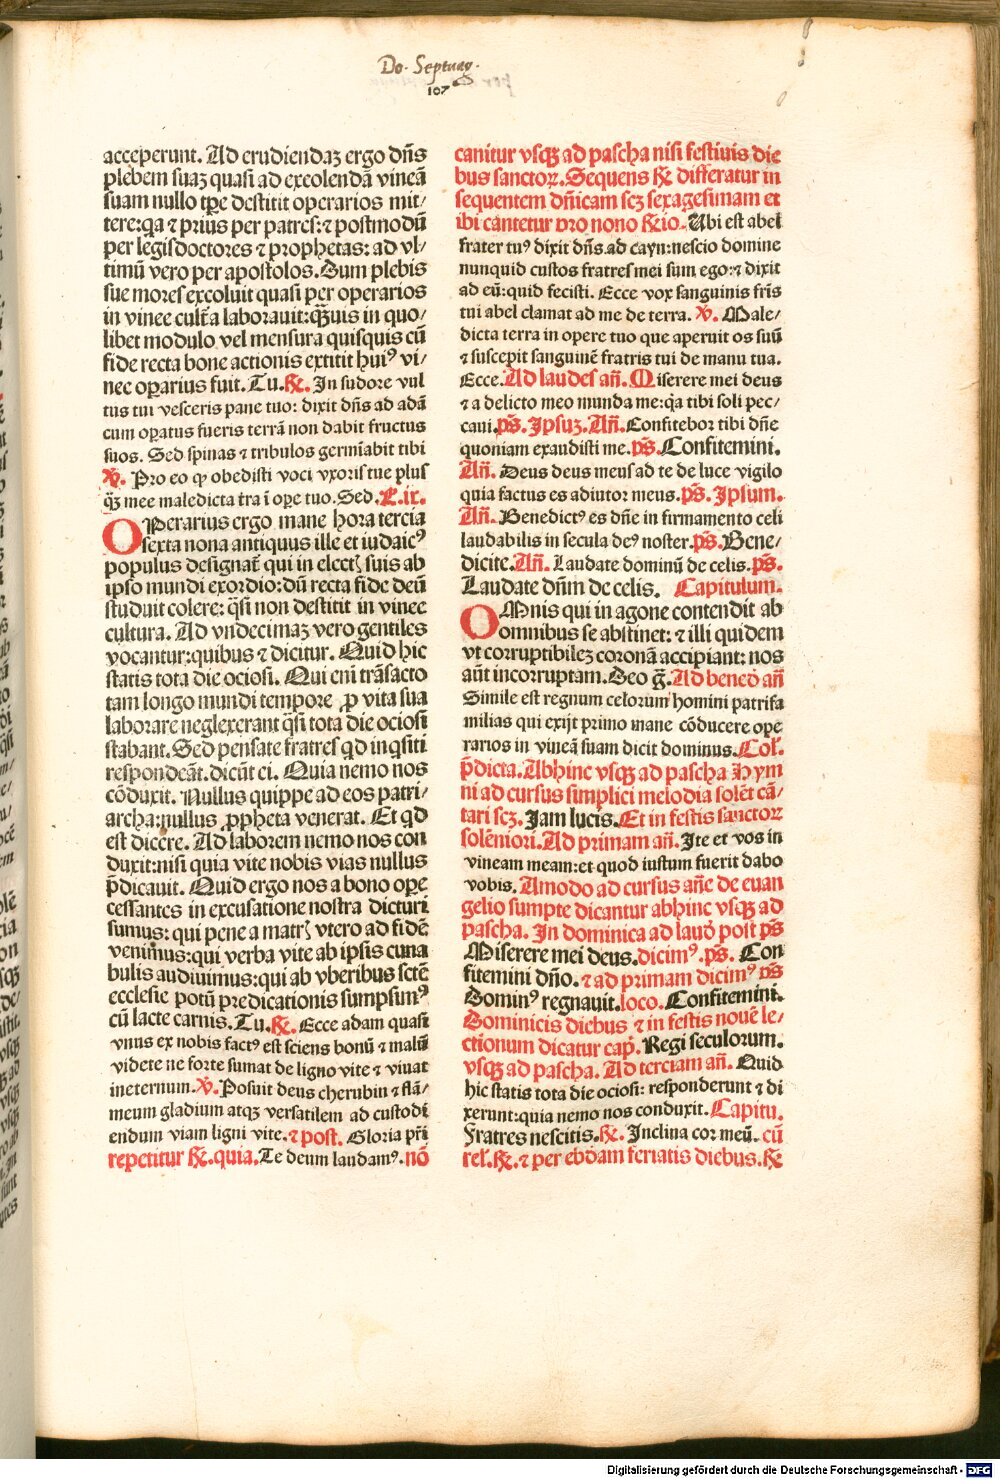 Do. Septuag.
107
acceperunt. Ad erudiendaz ergo dñs
plebem suaz quasi ad excolendã vineã
suam nullo tpe destitit operarios mit/
tere: qa ⁊ prius per patres: ⁊ postmodũ
per legisdoctores ⁊ prophetas: ad vl/
timũ vero per apostolos. Dum plebis
sue mores excoluit quasi per operarios
in vinee cult̃a laborauit: q̃uis in quo/
libet modulo vel mensura quisquis cũ
fide recta bone actionis extitit huiꝰ vi/
nec oꝑarius fuit. Tu. ℟. In sudore vul
tus tui vesceris pane tuo: dixit dñs ad adã
cum oꝑatus fueris terrã non dabit fructus
suos. Sed spinas ⁊ tribulos germĩabit tibi
℣. Pro eo ꝙ obedisti voci vxoris tue plus
q̃ mee maledicta tra ĩ oꝑe tuo. Sed. L. ix.
OPerarius ergo mane hora tercia
sexta nona antiquus ille et iudaicꝰ
populus designat̃ qui in electꝭ suis ab
ipso mundi exordio: dũ recta fide deũ
studuit colere: q̃si non destitit in vinee
cultura. Ad vndecimaz vero gentiles
vocantur: quibus ⁊ dicitur. Quid hic
statis tota die ociosi. Qui eni trãsacto
tam longo mundi tempore ꝓ vita sua
laborare neglexerant q̃si tota die ociosi
stabant. Sed pensate fratres qd inq̃siti
respondeãt. dicũt ei. Quia nemo nos
cõduxit. Nullus quippe ad eos patri/
archa: nullus ꝓpheta venerat. Et qd
est dicere. Ad laborem nemo nos con
duxit: nisi quia vite nobis vias nullus
p̃dicauit. Quid ergo nos a bono oꝑe
cessantes in excusatione nostra dicturi
sumus: qui pene a matrꝭ vtero ad fidẽ
venim̃us: qui verba vite ab ipsis cuna
bulis audiuimus: qui ab vberibus sctẽ
ecclesie potũ predicationis sumpsimꝰ
cũ lacte carnis. Tu. ℟. Ecce adam quasi
vnus ex nobis factꝰ est sciens bonũ ⁊ malũ
videte ne forte sumat de ligno vite ⁊ viuat
ineternum. ℣. Posuit deus cherubin ⁊ flã/
meum gladium atqꝫ versatilem ad custodi
endum viam ligni vite. ⁊ post. Gloria pr̃i
repetitur ℟. quia. Te deum laudamꝰ. nõ
canitur vsqꝫ ad pascha nisi festiuis die
bus sanctoꝝ. Sequens ℟ differatur in
sequentem dñicam scꝫ sexagesimam et
ibi cantetur pro nono ℟io. Ubi est abel
frater tuꝰ dixit dñs ad cayn: nescio domine
nunquid custos fratres mei sum ego: ⁊ dixit
ad eũ: quid fecisti. Ecce vox sanguinis fr̃is
tui abel clamat ad me de terra. ℣. Male/
dicta terra in opere tuo que aperuit os suũ
⁊ suscepit sanguinẽ fratris tui de manu tua.
Ecce. Ad laudes añ. Miserere mei deus
⁊ a delicto meo munda me: q̃a tibi soli pec/
caui. ps̃. Ipsuꝫ. Añ. Confitebor tibi dñe
quoniam exaudisti me. ps̃. Confitemini.
Añ. Deus deus meus ad te de luce vigilo
quia factus es adiutor meus. ps̃. Ipsum.
Añ. Benedictꝰ es dñe in firmamento celi
laudabilis in secula deꝰ noster. ps̃. Bene/
dicite. Añ. Laudate dominũ de celis. ps̃.
Laudate dñm de celis. Capitulum.
OMnis qui in agone contendit ab
omnibus se abstinet: ⁊ illi quidem
vt corruptibilez coronã accipiant: nos
aũt incorruptam. Deo g̃. Ad bened̃ añ
Simile est regnum celorum homini patrifa
milias qui exijt primo mane cõducere ope
rarios in vineã suam dicit dominus. Col̃.
p̃dicta. Abhinc vsqꝫ ad pascha Hym
ni ad cursus simplici melodia solẽt cã/
tari scꝫ. Jam lucis. Et in festis sanctorꝝ
solẽniori. Ad primam añ. Ite et vos in
vineam meam: et quod iustum fuerit dabo
vobis. Amodo ad cursus añe de euan
gelio sumpte dicantur abhinc vsqꝫ ad
pascha. In dominica ad laud̃ post ps̃
Miserere mei deus. dicimꝰ. ps̃. Con
fitemini dño. ⁊ ad primam dicimꝰ ps̃
Dominꝰ regnauit. loco. Confitemini.
Dominicis diebus ⁊ in festis nouẽ le/
ctionum dicatur cap̃. Regi seculorum.
vsqꝫ ad pascha. Ad terciam añ. Quid
hic statis tota die ociosi: responderunt ⁊ di
xerunt: quia nemo nos conduxit. Capitu.
Fratres nescitis. ℟. Inclina cor meũ. cũ
rel̃. ℟. ⁊ per ebdam feriatis diebus. ℟
Digitalisierung gefördert durch die Deutsche Forschungsgemeinschaft - DFG